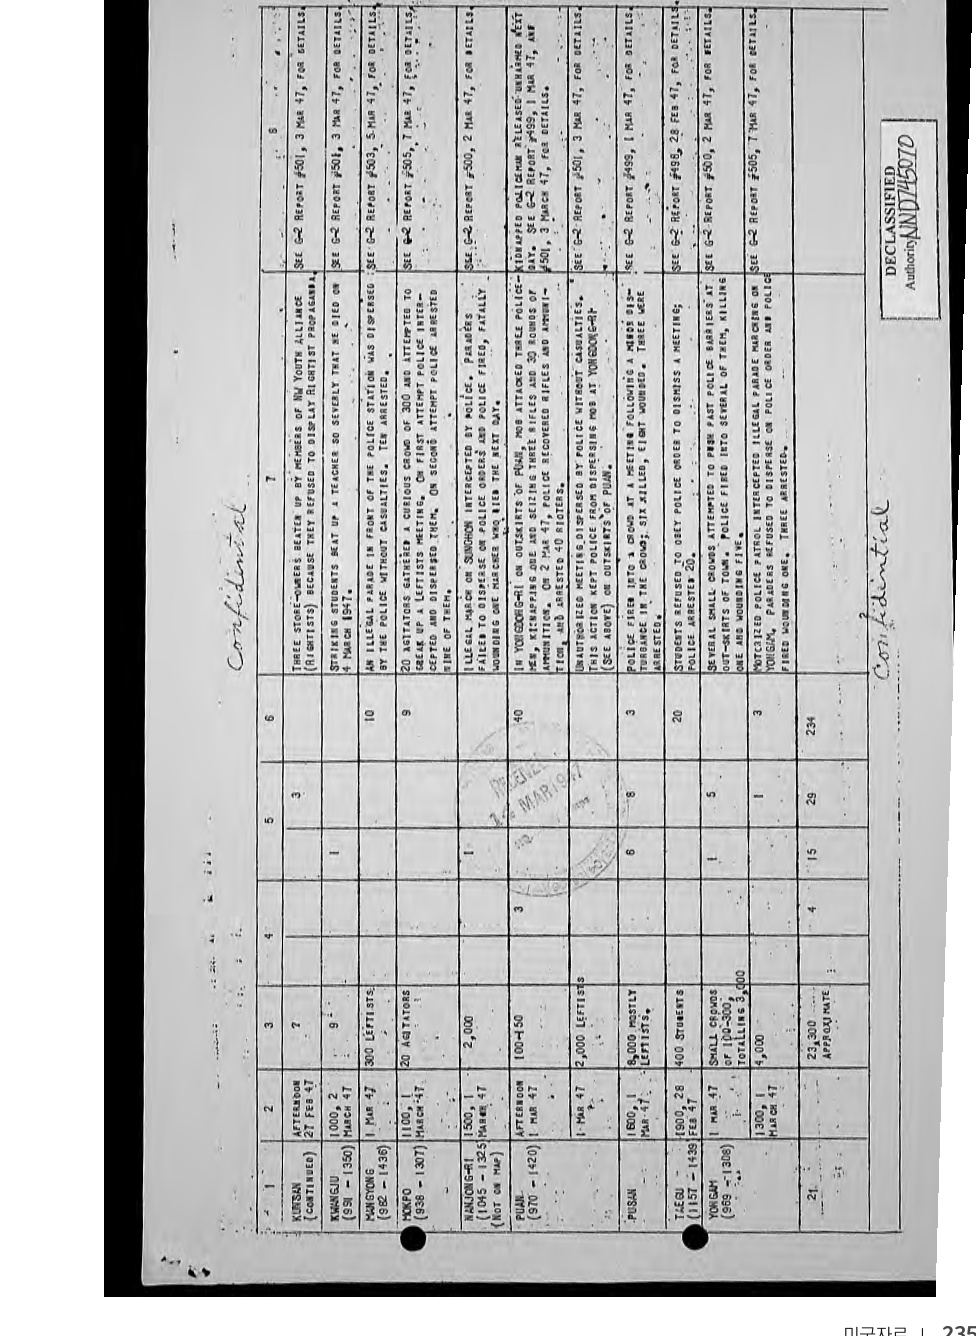 Confidential
1 2 3 4 5 6 7 8
KUNSAN AFTERNOON 7 3 THREE STORE-OWNERS BEATEN UP BY MEMBERS OF NW YOUTH ALLIANCE SEE G-2 REPORT #501, 3 MAR 47, FOR DETAILS.
(CONTINUED) 27 FEB 47 (RIGHTISTS) BECAUSE THEY REFUSED TO DISPLAY RIGHTIST PROPAGANDA.
KWANGJU 1000, 2 9 1 STRIKING STUDENTS BEAT UP A TEACHER SO SEVERLY THAT HE DIED ON SEE G-2 REPORT #501, 3 MAR 47, FOR DETAILS.
(991 - 1350) MARCH 47 4 MARCH 1947.
MANGYONG 1 MAR 47 300 LEFTISTS 10 AN ILLEGAL PARADE IN FRONT OF THE POLICE STATION WAS DISPERSED SEE G-2 REPORT #503, 5 MAR 47, FOR DETAILS.
(982 - 1436) BY THE POLICE WITHOUT CASUALTIES. TEN ARRESTED.
MOKPO 1100, 1 20 AGITATORS 9 20 AGITATORS GATHERED A CURIOUS CROWD OF 300 AND ATTEMPTED TO SEE G-2 REPORT #505, 7 MAR 47, FOR DETAILS.
(938 - 1307) MARCH 47 BREAK UP A LEFTISTS MEETING. ON FIRST ATTEMPT POLICE INTER-
CEPTED AND DISPERSED THEM. ON SECOND ATTEMPT POLICE ARRESTED
NINE OF THEM.
NANJONG-RI 1500, 1 2,000 1 ILLEGAL MARCH ON SUNCHON INTERCEPTED BY POLICE. PARADERS SEE G-2 REPORT #500, 2 MAR 47, FOR DETAILS.
(1045 - 1325) MARCH 47 FAILED TO DISPERSE ON POLICE ORDERS AND POLICE FIRED, FATALLY
(NOT ON MAP) WOUNDING ONE MARCHER WHO DIED THE NEXT DAY.
PUAN AFTERNOON 100-150 3 40 IN YONGDONG-RI ON OUTSKIRTS OF PUAN, MOB ATTACKED THREE POLICE- KIDNAPPED POLICEMAN RELEASED UNHARMED NEXT
(970 - 1420) 1 MAR 47 MEN, KIDNAPPING ONE AND SEIZING THREE RIFLES AND 30 ROUNDS OF DAY. SEE G-2 REPORT #499, 1 MAR 47, AND
AMMUNITION. ON 2 MAR 47, POLICE RECOVERED RIFLES AND AMMUNI- #501, 3 MARCH 47, FOR DETAILS.
TION AND ARRESTED 40 RIOTERS.
1 MAR 47 2,000 LEFTISTS UNAUTHORIZED MEETING DISPERSED BY POLICE WITHOUT CASUALTIES. SEE G-2 REPORT #501, 3 MAR 47, FOR DETAILS.
THIS ACTION KEPT POLICE FROM DISPERSING MOB AT YONGDONG-RI
(SEE ABOVE) ON OUTSKIRTS OF PUAN.
PUSAN 1600, 1 8,000 MOSTLY 6 8 3 POLICE FIRED INTO A CROWD AT A MEETING FOLLOWING A MINOR DIS- SEE G-2 REPORT #499, 1 MAR 47, FOR DETAILS.
MAR 47 LEFTISTS. TURBANCE IN THE CROWD; SIX KILLED, EIGHT WOUNDED. THREE WERE
ARRESTED.
TAEGU 1900, 28 400 STUDENTS 20 STUDENTS REFUSED TO OBEY POLICE ORDER TO DISMISS A MEETING; SEE G-2 REPORT #498, 28 FEB 47, FOR DETAILS
(1157 - 1439) FEB 47 POLICE ARRESTED 20.
YONGAM 1 MAR 47 SMALL CROWDS 1 5 SEVERAL SMALL CROWDS ATTEMPTED TO PUSH PAST POLICE BARRIERS AT SEE G-2 REPORT #500, 2 MAR 47, FOR DETAILS.
(969 - 1308) OF 100-300, OUT-SKIRTS OF TOWN. POLICE FIRED INTO SEVERAL OF THEM, KILLING
TOTALLING 3,000 ONE AND WOUNDING FIVE.
1300, 1 4,000 1 3 MOTORIZED POLICE PATROL INTERCEPTED ILLEGAL PARADE MARCHING ON SEE G-2 REPORT #505, 7 MAR 47, FOR DETAILS.
MARCH 47 YONGAM. PARADERS REFUSED TO DISPERSE ON POLICE ORDER AND POLICE
FIRED WOUNDING ONE. THREE ARRESTED.
21 23,300 4 15 29 234
APPROXIMATE
RECEIVED
MAR 1947
Confidential
DECLASSIFIED
Authority NND745070
미국자료 | 235